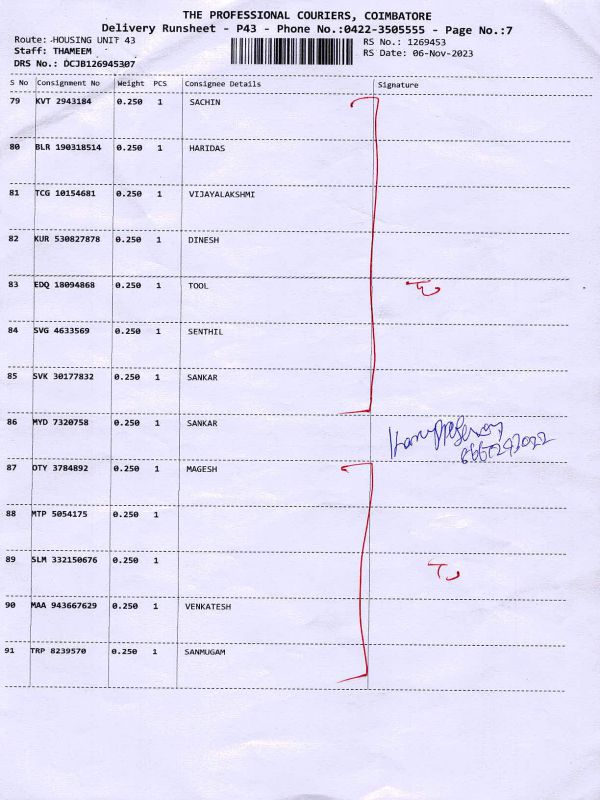 THE PROFESSIONAL COURIERS, COIMBATORE
Delivery Runsheet - P43 - Phone No.:0422-3505555 - Page No.:7
Route: HOUSING UNIT 43 RS No.: 1269453
Staff: THAMEEM RS Date: 06-Nov-2023
DRS No.: DCJB126945307
S No Consignment No Weight PCS Consignee Details Signature
79 KVT 2943184 0.250 1 SACHIN
80 BLR 190318514 0.250 1 HARIDAS
81 TCG 10154681 0.250 1 VIJAYALAKSHMI
82 KUR 530827878 0.250 1 DINESH
83 EDQ 18094868 0.250 1 TOOL
84 SVG 4633569 0.250 1 SENTHIL
85 SVK 30177832 0.250 1 SANKAR
86 MYD 7320758 0.250 1 SANKAR
87 OTY 3784892 0.250 1 MAGESH
88 MTP 5054175 0.250 1
89 SLM 332150676 0.250 1
90 MAA 943667629 0.250 1 VENKATESH
91 TRP 8239570 0.250 1 SANMUGAM